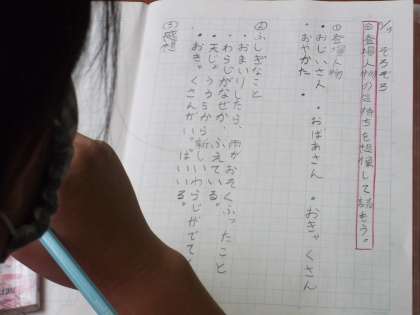 9/13 そろそろ
㋱登場人物の気持ちを想像して読もう。
①登場人物
・おじいさん ・おばあさん ・おきゃくさん
・おやかた
②ふしぎなこと
・おまいりしたら、雨がおそくふったこと
・わらじがなぜか、ふえている。
・天じょうから新しいわらじがでて
・おきゃくさんがいっぱいいる。
③感想